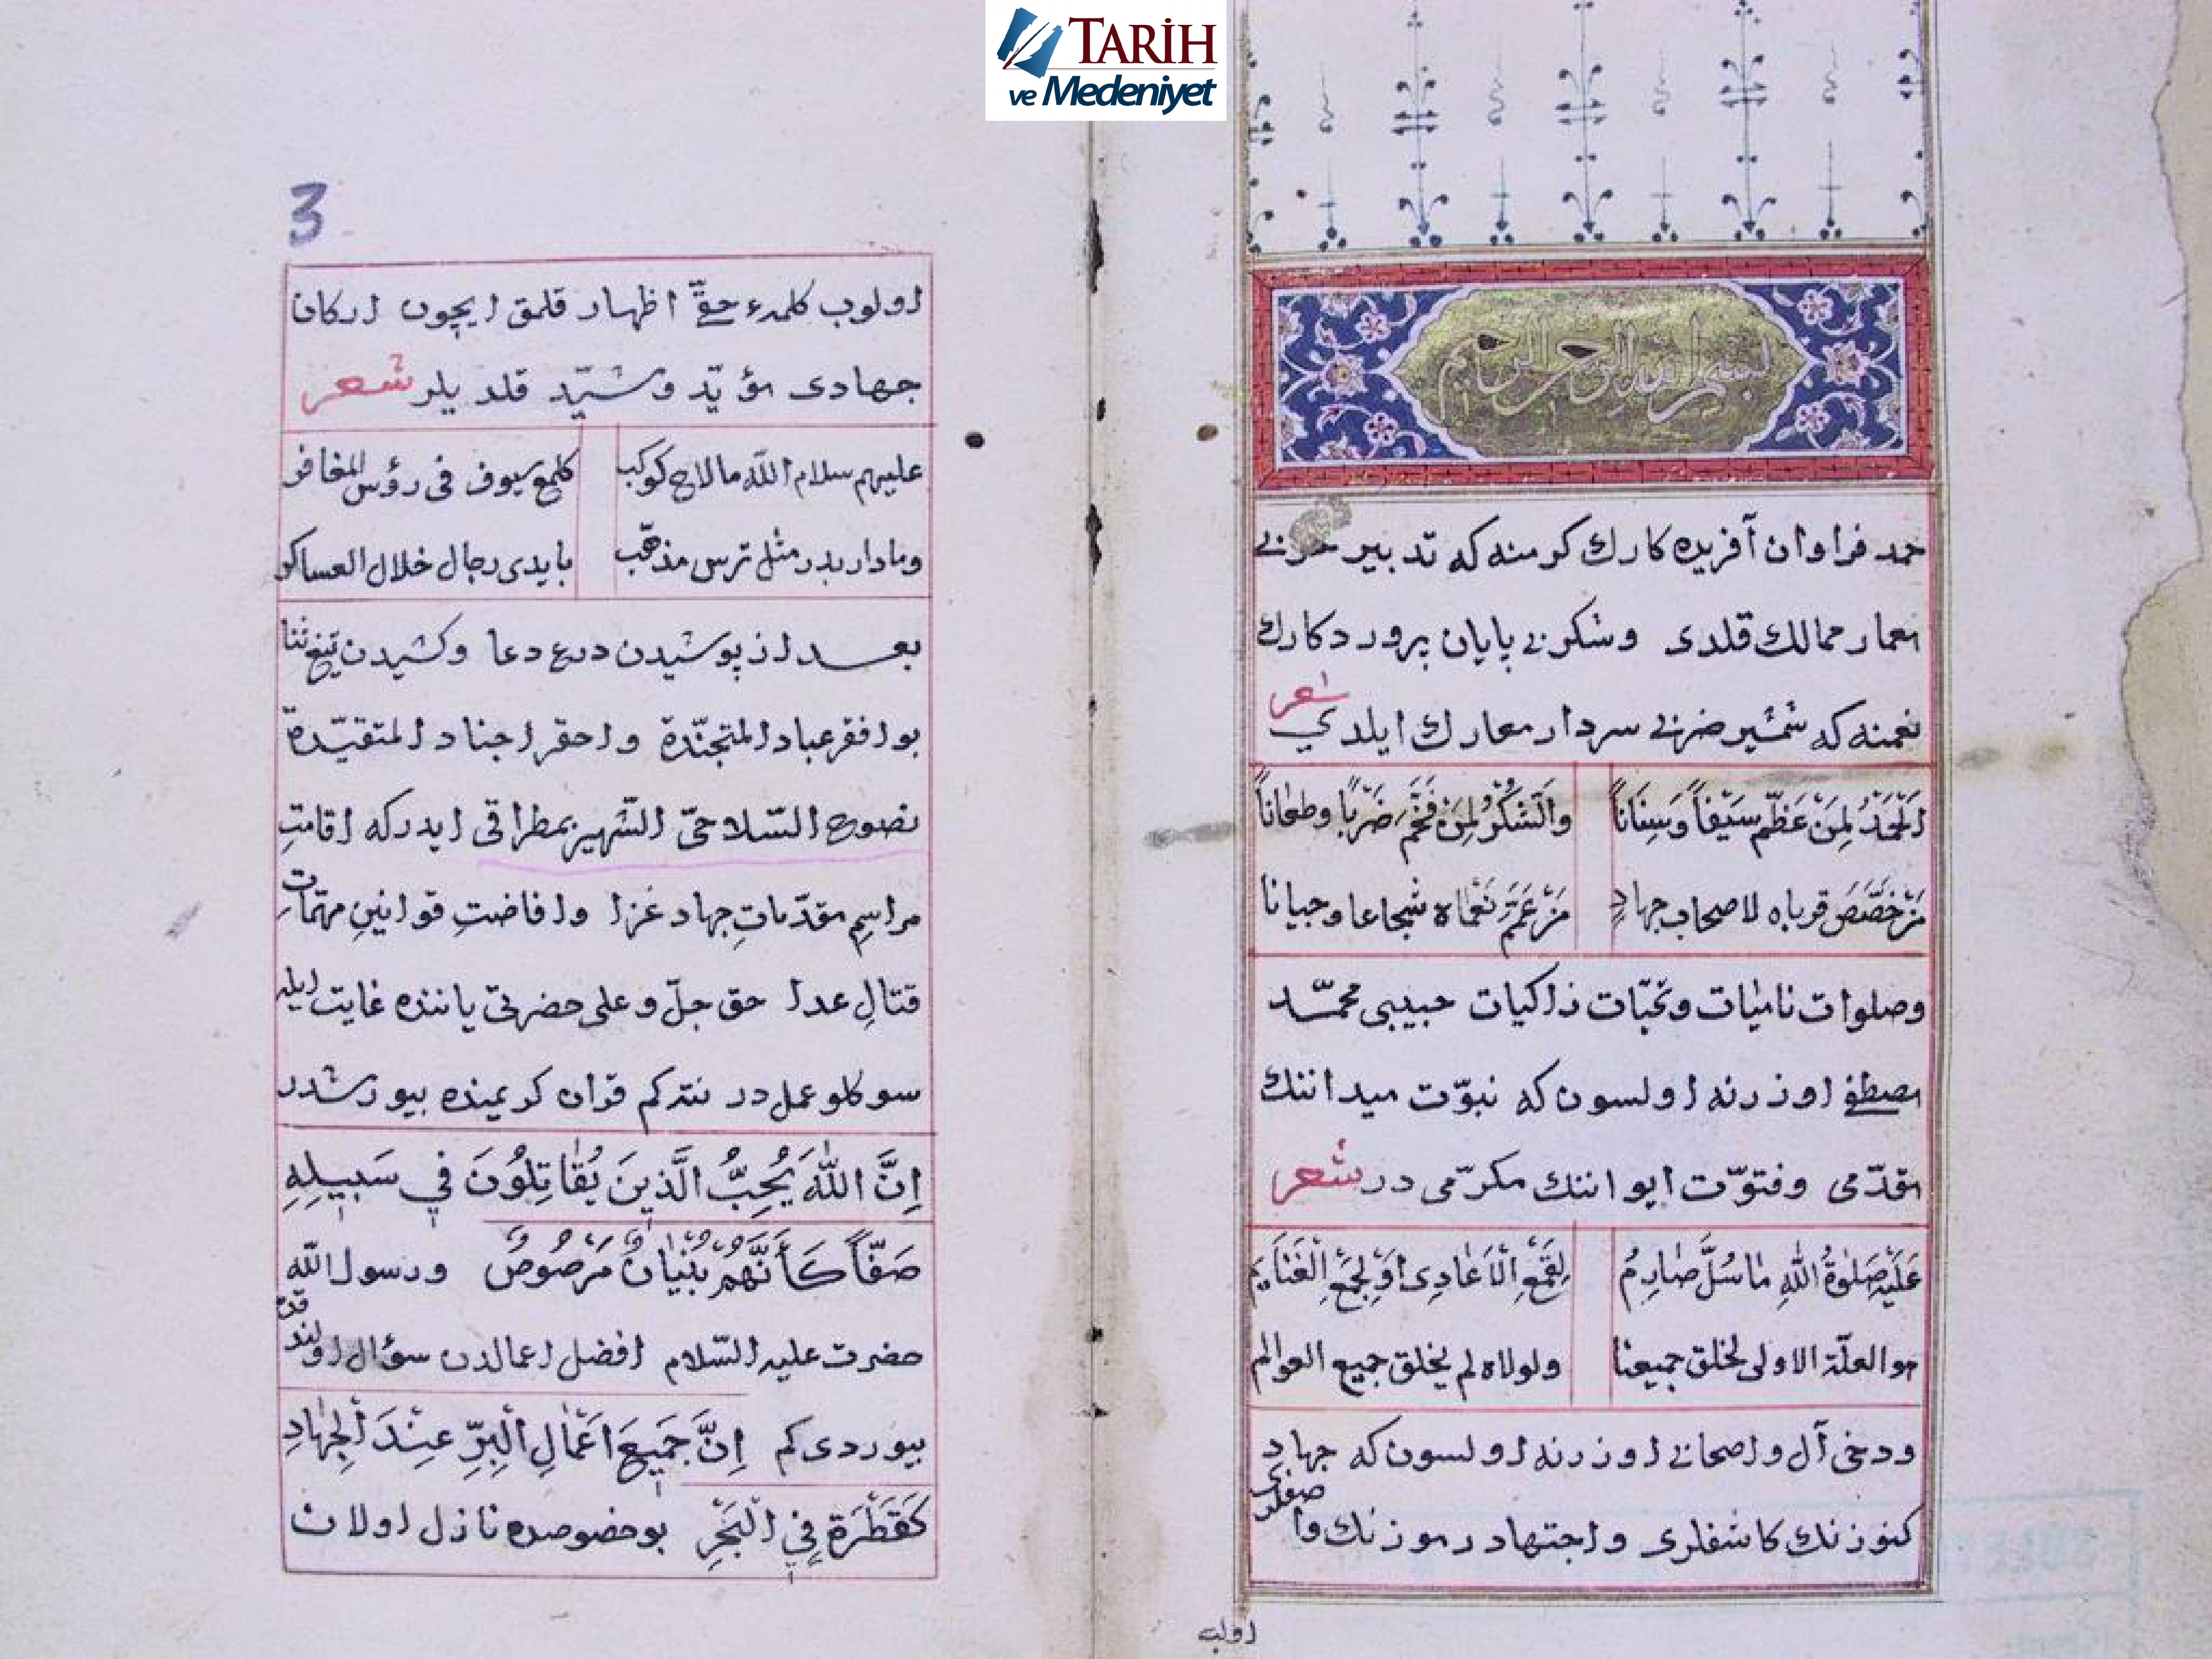 TARİH
ve Medeniyet
بسم الله الرحمن الرحيم
حمد فراوان آفريده كارك كرمنه كه تدبير حربى
معمار ممالك قلدى وشكر بى پايان پروردكارك
نعمنه كه شمشير ضربى سردار معارك ايلدي شعر
اَلْحَمْدُ لِمَنْ عَظَّمَ سَيْفاً وَسِنَاناً وَالشُّكْرُ لِمَنْ فَخَّمَ ضَرْباً وطعاناً
مَنْ خَصَّصَ قرباه لاصحاب جهادٍ مَنْ عَمَّمَ نَعْمَاه شجاعا وجبانا
وصلوات ناميات وتحيّات زاكيات حبيبى محمّد
مصطفى اوزرنه اولسون كه نبوّت ميداننك
مقدّمى وفتوّت ايواننك مكرّمى در شعر
عَلَيْهِ صَلٰوةُ اللّٰهِ مٰا سُلَّ صٰارِمُ لِقَمْعِ الْاَعٰادِى اَوْ لِجَمْعِ الْغَنَايِمِ
هو العلّة الاولى لخلق جميعنا ولولاه لم يخلق جميع العوالم
ودخى آل واصحابى اوزرنه اولسون كه جهاد
كنوزنك كاشفلرى واجتهاد رموزنك واصفلرى
اولوب
3
اولوب كلمهء حقّى اظهار قلمق ايچون اركان
جهادى مؤيّد ومشيّد قلديلر شعر
عليهم سلام اللّه ما لاح كوكب كلمع سيوف فى رؤس المغافر
وما دار بدر مثل ترس مذهّب بايدى رجال خلال العساكر
بعد از پوشيدن درع دعا وكشيدن تيغ ثنا
بو افقر عباد المتجنّدة واحقر اجناد المتقيّدة
نصوح السّلاحىّ الشّهير بمطراقى ايدركه اقامتِ
مراسمِ مقدّماتِ جهاد غزا وافاضتِ قوانينِ مهمّاتِ
قتالِ عدا حق جلّ وعلى حضرتى ياننده غايت ايله
سوكلو عمل در نته كم قران كريمنده بيورشدر
اِنَّ اللّٰهَ يُحِبُّ الَّذِينَ يُقٰاتِلُونَ فِي سَبِيلِهِ
صَفّاً كَاَنَّهُمْ بُنْيٰانٌ مَرْصُوصٌ ورسول اللّه
حضرت عليه السّلام افضل اعمالدن سؤال اولندقده
بيوردى كم اِنَّ جَمِيعَ اَعْمٰالِ الْبِرِّ عِنْدَ الْجِهٰادِ
كَقَطْرَةٍ فِي الْبَحْرِ بو خصوصده نازل اولان